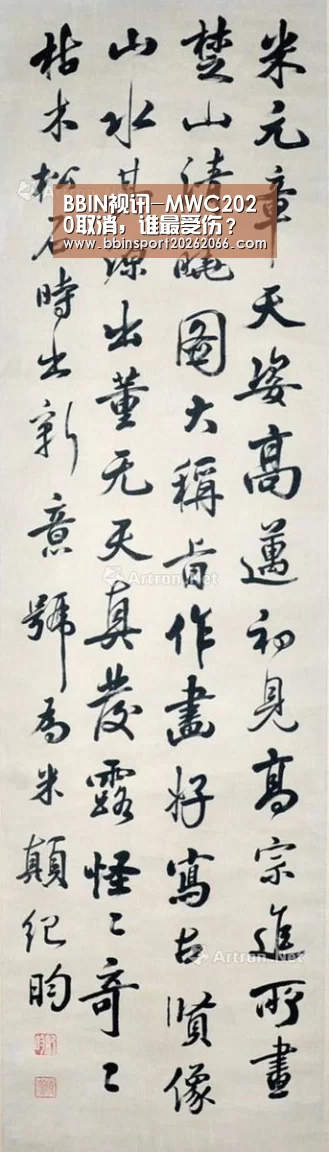 BBIN视讯-MWC202
0取消，谁最受伤？
www.bbinsport20262066.com
米元章天姿高邁初見高宗進所畫
楚山清曉圖大稱旨作畫好寫古賢像
山水其源出董元天真發露怪〻奇〻
枯木松石時出新意號為米顛紀昀
Artron.Net
Artron.Net